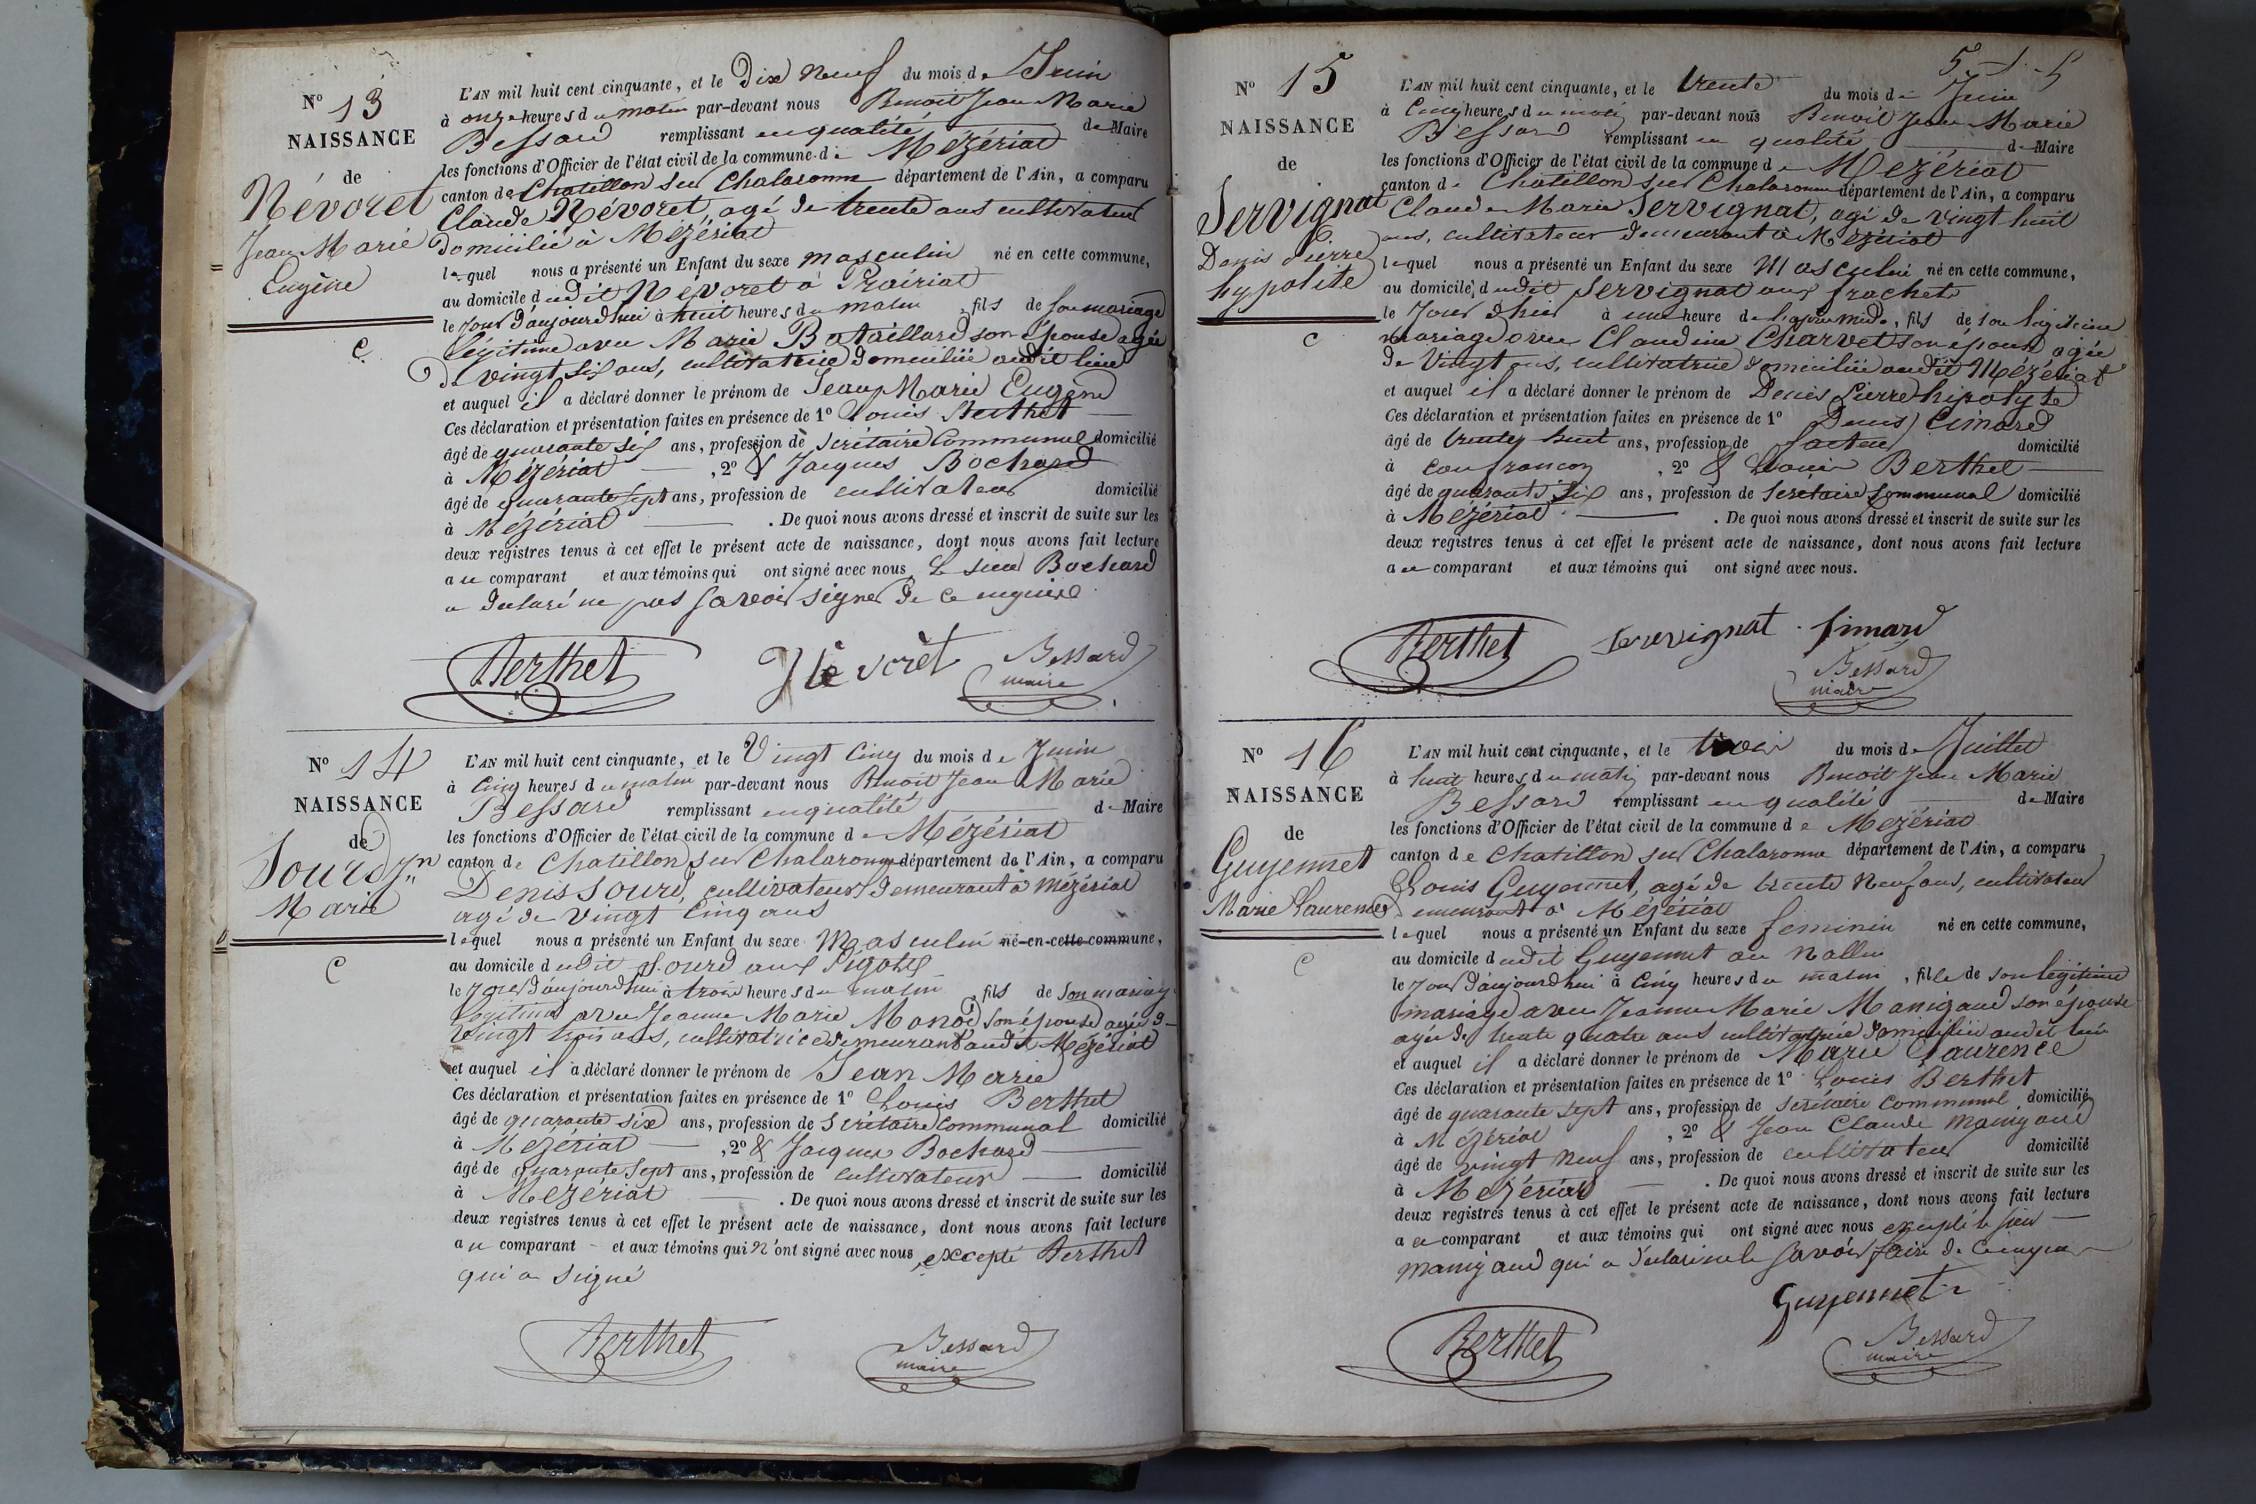 N° 13
NAISSANCE
de
Névoret
Jean Marie
Eugène
C
L'AN mil huit cent cinquante, et le Dix neuf du mois de Juin
à onze heures du matin par-devant nous Benoit Jean Marie
Bessard remplissant en qualité de Maire
les fonctions d'Officier de l'état civil de la commune de Mézériat
canton de Chatillon sur Chalaronne département de l'Ain, a comparu
Claude Névoret, agé de trente ans cultivateur
domicilié à Mézériat
lequel nous a présenté un Enfant du sexe masculin né en cette commune,
au domicile dudit Névoret à Prairiat
le jour d'aujourdhui à huit heures du matin, fils de son mariage
légitime avec Marie Bataillard son épouse agée
de vingt six ans, cultivatrice domiciliée audit lieu
et auquel il a déclaré donner le prénom de Jean Marie Eugène
Ces déclaration et présentation faites en présence de 1° Louis Berthet
âgé de quarante six ans, profession de Secrétaire Communal domicilié
à Mézériat, 2° & Jacques Bochard
âgé de quarante sept ans, profession de cultivateur domicilié
à Mézériat. De quoi nous avons dressé et inscrit de suite sur les
deux registres tenus à cet effet le présent acte de naissance, dont nous avons fait lecture
au comparant et aux témoins qui ont signé avec nous, Le sieur Bochard
a déclaré ne pas savoir signer de ce enquise
Berthet Névorèt Bessard
maire
N° 14
NAISSANCE
de
Sourd Jn
Marie
C
L'AN mil huit cent cinquante, et le Vingt Cinq du mois de Juin
à Cinq heures du matin par-devant nous Benoit Jean Marie
Bessard remplissant en qualité de Maire
les fonctions d'Officier de l'état civil de la commune de Mézériat
canton de Chatillon sur Chalaronne département de l'Ain, a comparu
Denis Sourd, cultivateur demeurant à Mézériat
agé de Vingt Cinq ans
lequel nous a présenté un Enfant du sexe Masculin né en cette commune,
au domicile dudit Sourd aux
le jour d'aujourdhui à trois heures du matin, fils de son mariage
légitime avec Jeanne Marie son épouse agée de
Vingt trois ans, cultivatrice demeurant audit Mézériat
et auquel il a déclaré donner le prénom de Jean Marie
Ces déclaration et présentation faites en présence de 1° Louis Berthet
âgé de quarante six ans, profession de Secrétaire Communal domicilié
à Mézériat, 2° & Jacques Bochard
âgé de quarante sept ans, profession de cultivateur domicilié
à Mézériat. De quoi nous avons dressé et inscrit de suite sur les
deux registres tenus à cet effet le présent acte de naissance, dont nous avons fait lecture
au comparant et aux témoins qui n'ont signé avec nous, excepté Berthet
qui a signé
Berthet Bessard
maire
N° 15
NAISSANCE
de
Servignat
Denis Pierre
hypolite
C
L'AN mil huit cent cinquante, et le trente du mois de Juin
à Cinq heures du matin par-devant nous Benoit Jean Marie
Bessard remplissant en qualité de Maire
les fonctions d'Officier de l'état civil de la commune de Mézériat
canton de Chatillon sur Chalaronne département de l'Ain, a comparu
Claude Marie Servignat, agé de vingt huit
ans, cultivateur demeurant à Mézériat
lequel nous a présenté un Enfant du sexe Masculin né en cette commune,
au domicile dudit Servignat aux frachets
le Jour d'hier à une heure de l'après midi, fils de son légitime
mariage avec Claudine Charvet son épouse agée
de Vingt ans, cultivatrice domiciliée audit Mézériat
et auquel il a déclaré donner le prénom de Denis Pierre hipolyte
Ces déclaration et présentation faites en présence de 1° Denis Cimard
âgé de trente huit ans, profession de facteur domicilié
à Confrançon, 2° & Louis Berthet
âgé de quarante six ans, profession de Secrétaire Communal domicilié
à Mézériat. De quoi nous avons dressé et inscrit de suite sur les
deux registres tenus à cet effet le présent acte de naissance, dont nous avons fait lecture
au comparant et aux témoins qui ont signé avec nous.
Berthet Servignat Simard
Bessard
maire
N° 16
NAISSANCE
de
Guyennet
Marie Laurence
C
L'AN mil huit cent cinquante, et le trois du mois de Juillet
à huit heures du matin par-devant nous Benoit Jean Marie
Bessard remplissant en qualité de Maire
les fonctions d'Officier de l'état civil de la commune de Mézériat
canton de Chatillon sur Chalaronne département de l'Ain, a comparu
Louis Guyennet, agé de trente neuf ans, cultivateur
demeurant à Mézériat
lequel nous a présenté un Enfant du sexe feminin né en cette commune,
au domicile dudit Guyennet au
le jour d'aujourdhui à Cinq heures du matin, fille de son légitime
mariage avec Jeanne Marie Manigand son épouse
agée de trente quatre ans cultivatrice domiciliée audit lieu
et auquel il a déclaré donner le prénom de Marie Laurence
Ces déclaration et présentation faites en présence de 1° Louis Berthet
âgé de quarante sept ans, profession de Secrétaire Communal domicilié
à Mézériat, 2° & Jean Claude Manigand
âgé de vingt neuf ans, profession de cultivateur domicilié
à Mézériat. De quoi nous avons dressé et inscrit de suite sur les
deux registres tenus à cet effet le présent acte de naissance, dont nous avons fait lecture
au comparant et aux témoins qui ont signé avec nous excepté le sieur
Manigand qui a déclaré ne le savoir faire de ce enquis
Guyennet
Berthet Bessard
maire